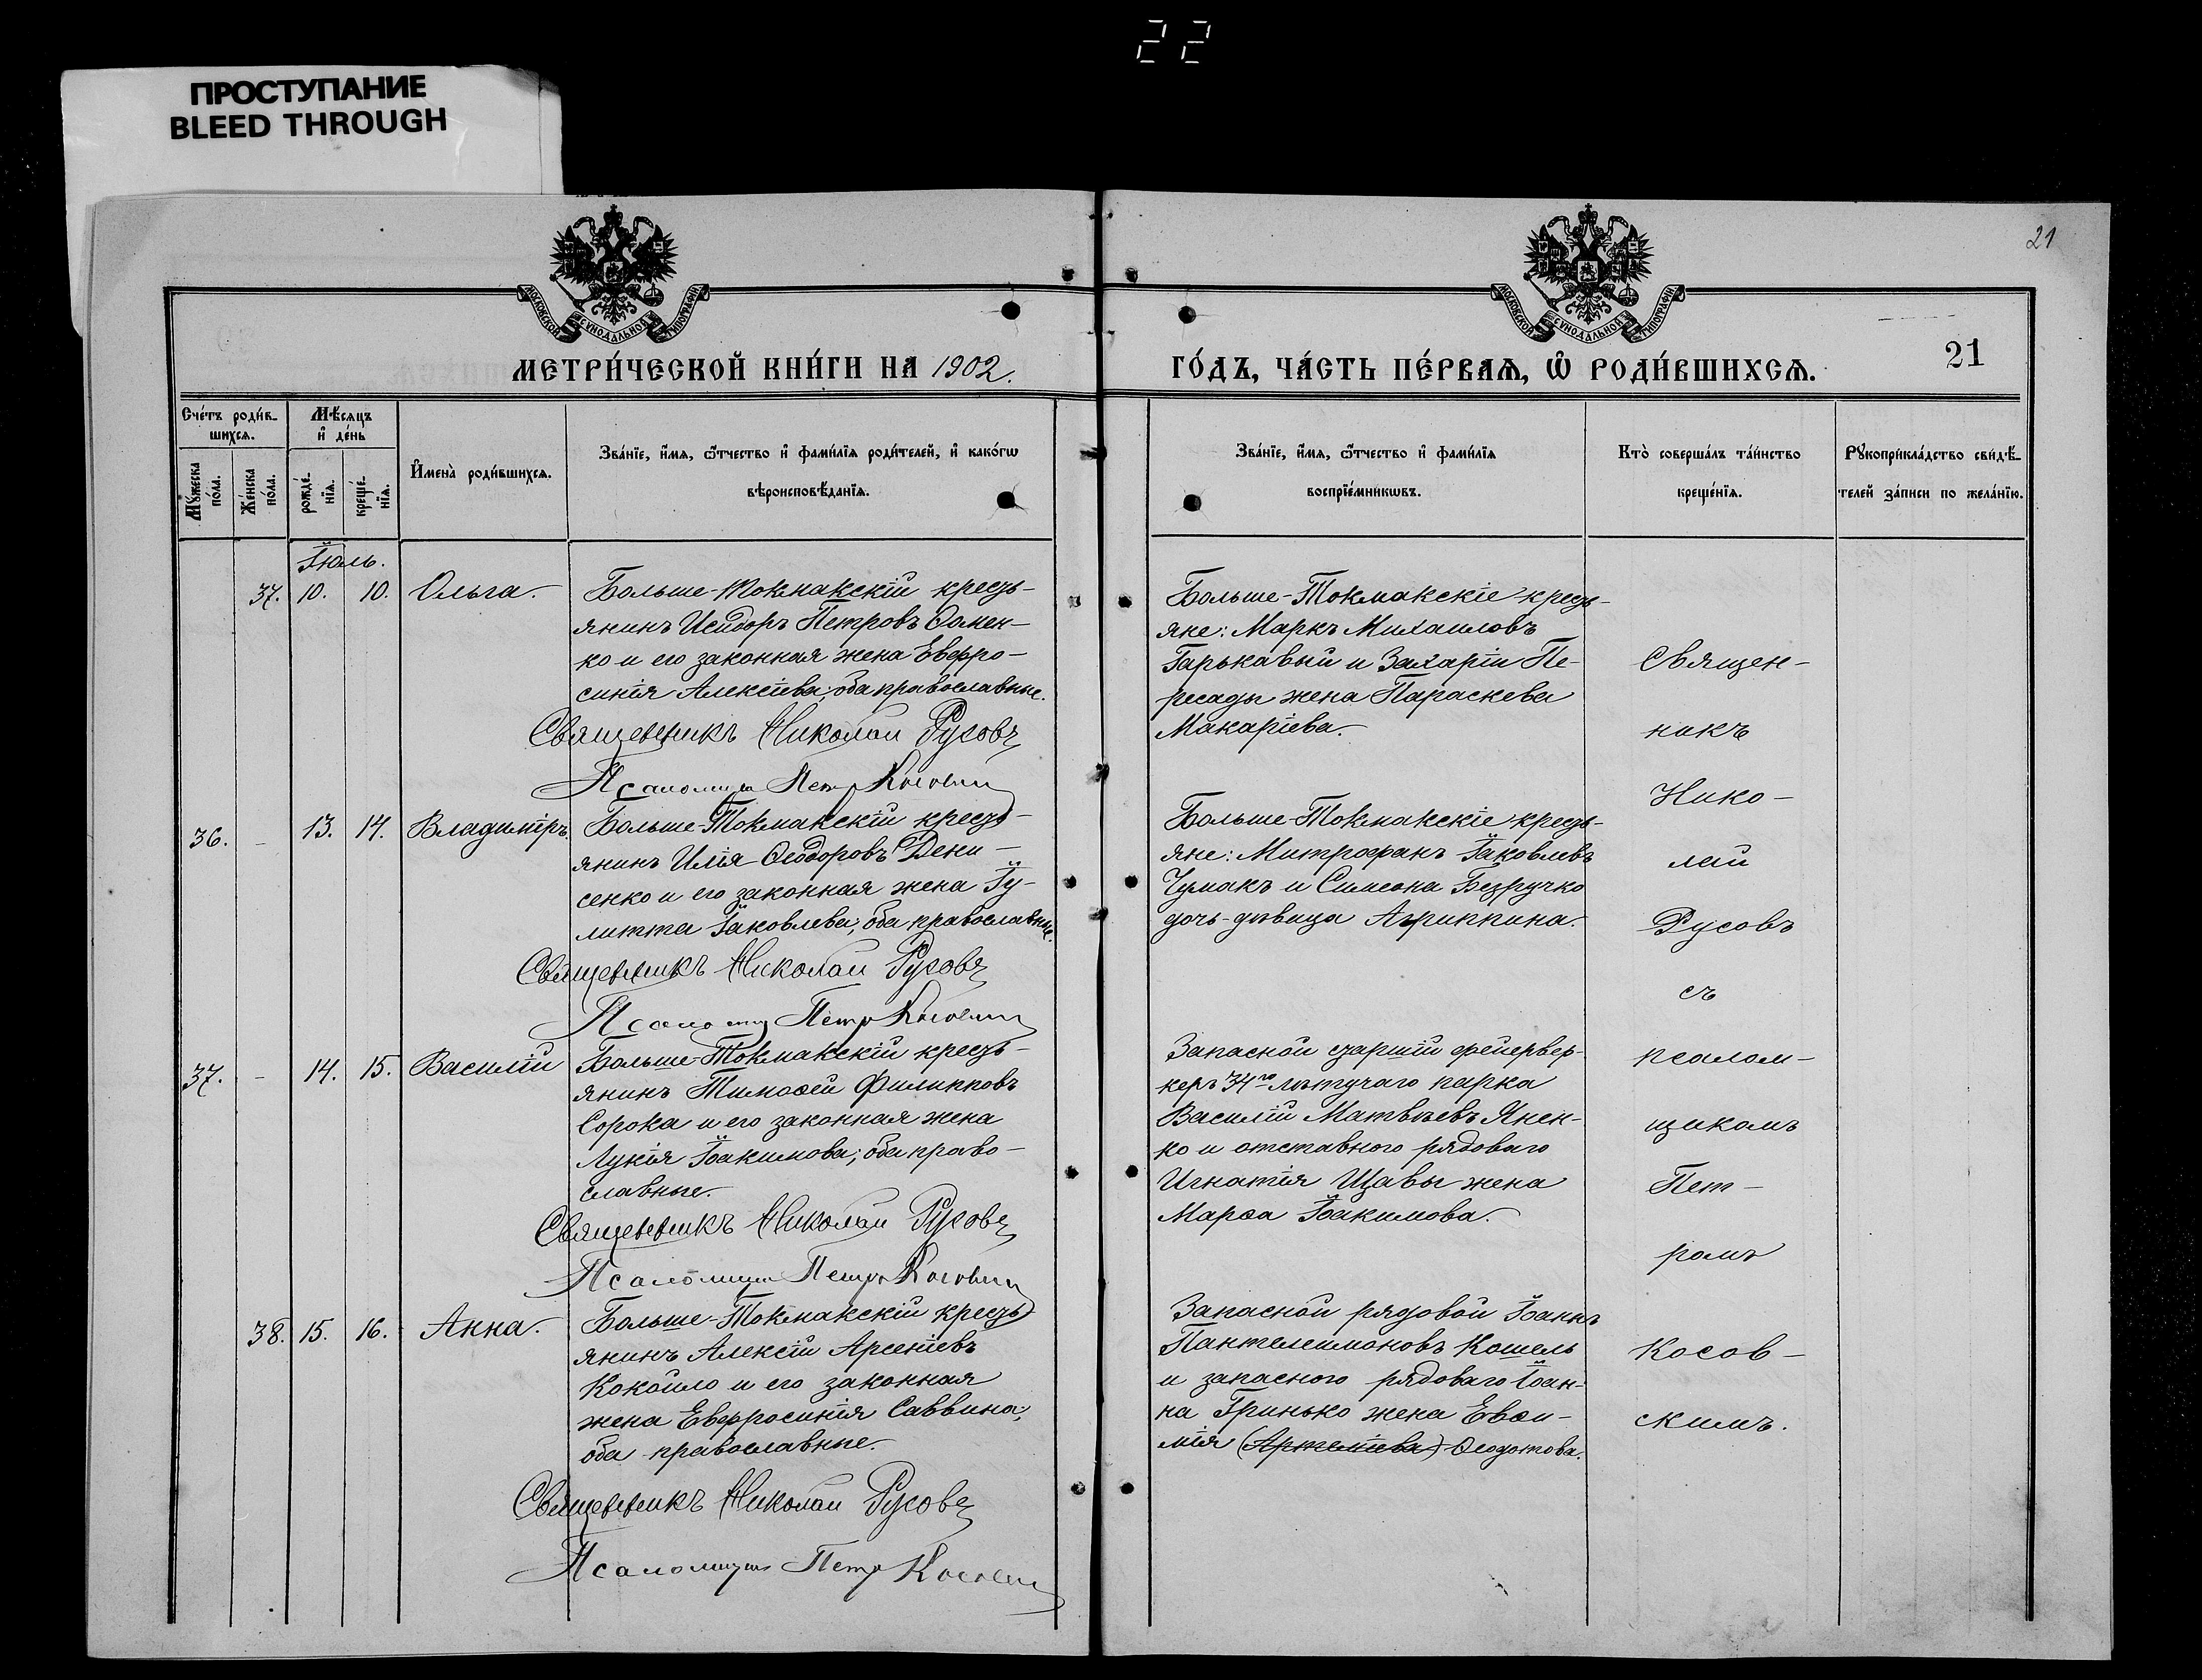 22
ПРОСТУПАНИЕ
BLEED THROUGH
21
МОСКОВСКОЙ СѴНОДАЛЬНОЙ ТИПОГРАФІИ
МОСКОВСКОЙ СѴНОДАЛЬНОЙ ТИПОГРАФІИ
МЕТРИ́ЧЕСКОЙ КНИ́ГИ НА 1902.
ГО́ДЪ, ЧА́СТЬ ПЕ́РВАѦ, Ѡ҆ РОДИ́ВШИХСѦ.
21
Сче́тъ роди́в-
шихсѧ.
Мꙋ́жеска по́ла.
Же́нска по́ла.
Мѣ́сѧцъ
и҆ де́нь
рожде́-
нїѧ.
креще́-
нїѧ.
И҆мена̀ роди́вшихсѧ.
Зва́нїе, и҆́мѧ, ѻ҆́тчество и҆ фами́лїѧ роди́телей, и҆ како́гѡ
вѣроисповѣ́данїѧ.
Зва́нїе, и҆́мѧ, ѻ҆́тчество и҆ фами́лїѧ
воспрїе́мникѡвъ.
Кто̀ соверша́лъ та́инство
креще́нїѧ.
Рꙋкоприкла́дство свидѣ́-
телей за́писи по жела́нїю.
Іюль.
37. 10. 10. Ольга.
Больше-Токмакскій кресть-
янинъ Исидоръ Петровъ Оомен-
ко и его законная жена Евфро-
синія Алексіева; оба православные.
Священникъ Николай Русовъ
Псаломщ. Петр Косовскій
Больше-Токмакскіе кресть-
яне: Маркъ Михаиловъ
Гарькавый и Захаріи Пе-
ресады жена Параскева
Макаріева.
36. - 13. 14. Владиміръ.
Больше-Токмакскій кресть-
янинъ Илія Ѳеодоровъ Дени-
сенко и его законная жена Іу-
литта Іаковлева; оба православные.
Священникъ Николай Русовъ
Псаломщ Петръ Косовскій
Больше-Токмакскіе кресть-
яне: Митрофанъ Іаковлевъ
Чумакъ и Симеона Безручко
дочь-дѣвица Агриппина.
37. - 14. 15. Василій
Больше-Токмакскій кресть-
янинъ Тимоѳей Филипповъ
Сорока и его законная жена
Лукія Іоакимова; оба право-
славные.
Священникъ Николай Русовъ
Псаломщик Петръ Косовскій
Запасной старшій фейервер-
керъ 34го летучаго парка
Василій Матвѣевъ Янен-
ко и отставного рядоваго
Игнатія Щавы жена
Марѳа Іоакимова.
38. 15. 16. Анна.
Больше-Токмакскій кресть-
янинъ Алексій Арсеніевъ
Кокойло и его законная
жена Евфросинія Саввина;
оба православные.
Священникъ Николай Русовъ
Псаломщик Петр Косовскій
Запасной рядовой Іоаннъ
Пантелеимоновъ Кошель
и запасного рядоваго Іоан-
на Гринько жена Евѳи-
мія (Артеміева) Ѳеодотова.
Священ-
никъ
Нико-
лай
Русовъ
съ
псалом-
щикомъ
Пет-
ромъ
Косов-
скимъ.